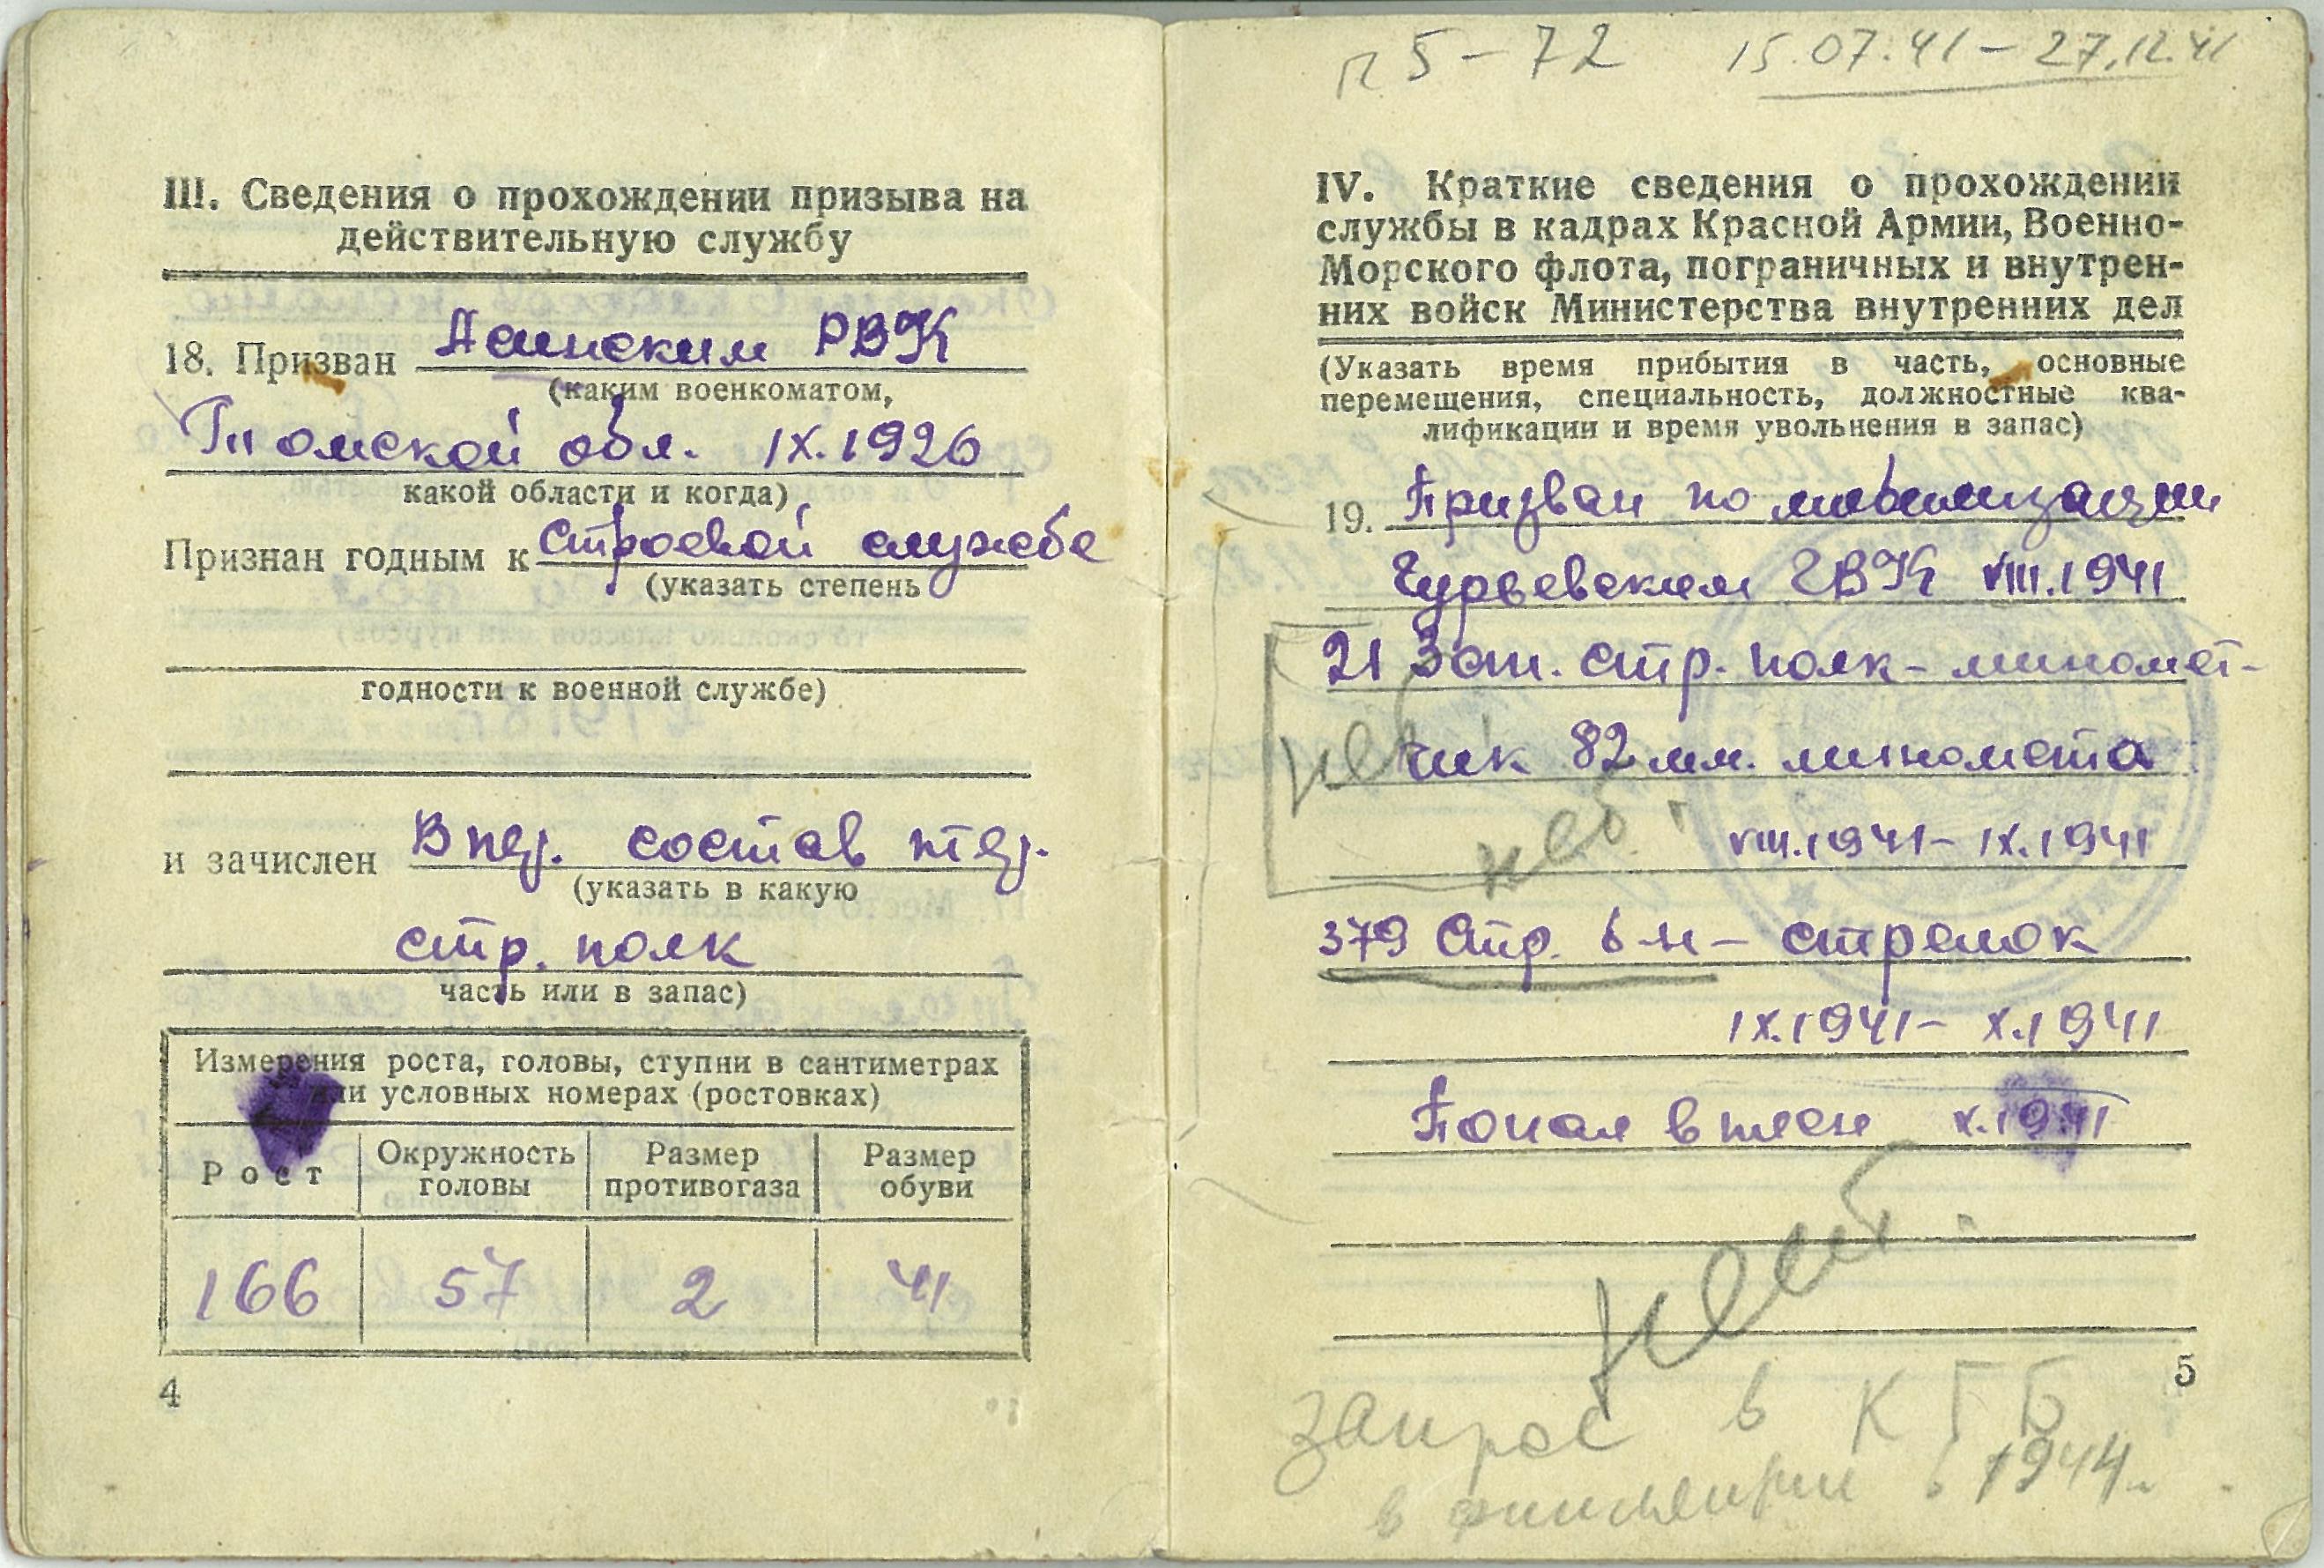 III. Сведения о прохождении призыва на
действительную службу
18. Призван Асинским РВК
(каким военкоматом,
Томской обл. IX.1926
какой области и когда)
Признан годным к строевой службе
(указать степень
годности к военной службе)
и зачислен В пер. состав тер.
(указать в какую
стр. полк
часть или в запас)
Измерения роста, головы, ступни в сантиметрах
или условных номерах (ростовках)
Рост Окружность головы Размер противогаза Размер обуви
166 57 2 41
4
п 5-72 15.07.41-27.12.41
IV. Краткие сведения о прохождении
службы в кадрах Красной Армии, Военно-
Морского флота, пограничных и внутрен-
них войск Министерства внутренних дел
(Указать время прибытия в часть, основные
перемещения, специальность, должностные ква-
лификации и время увольнения в запас)
19. Призван по мобилизации
Гурьевским ГВК VIII.1941
21 Зап. стр. полк - миномет-
чик 82 мм. миномета
нет
VIII.1941- IX.1941
379 стр. б-н - стрелок
IX.1941- X.1941
Попал в плен X.1941
нет.
5
запрос в КГБ
в 1944 г.